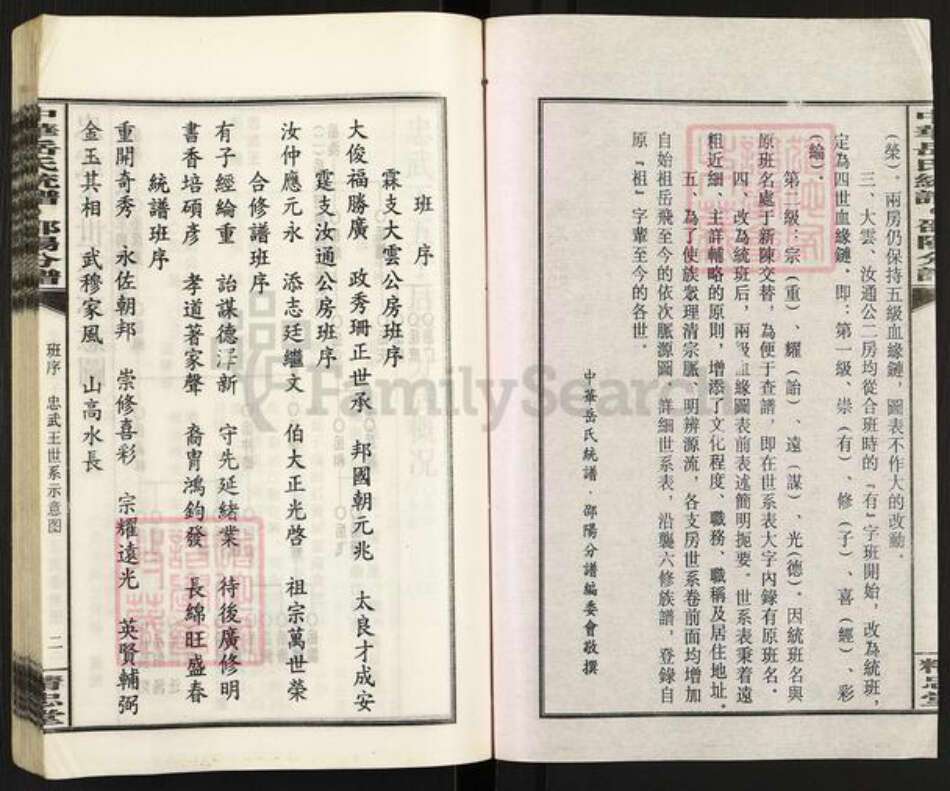 (榮)，兩房仍保持五級血緣鏈，圖表不作大的改動．
三、大雲、汝通公二房均從合班時的『有』字班開始，改為統班，
定為四世血緣鏈．即：第一級、崇(有)、修(子)、喜(經)、彩
(綸)．
第二級：宗(重)、耀(詒)、遠(謀)、光(德)．因統班名與
原班名處于新陳交替，為便于查譜，即在世系表大字內錄有原班名．
四、改為統班后，兩級血緣圖表前表述簡明扼要．世系表秉着遠
粗近細、主詳輔略的原則，增添了文化程度、職務、職稱及居住地址．
五、為了使族衆理清宗脈、明辨源流，各支房世系卷前面均增加
自始祖岳飛至今的依次脈源圖．詳細世系表，沿襲六修族譜，登錄自
原『祖』字輩至今的各世．
中華岳氏統譜．邵陽分譜編委會敬撰
中華岳氏統譜．邵陽分譜
班序
霖支大雲公房班序
大俊福勝廣 政秀珊正世承 邦國朝元兆 太良才成安
霆支汝通公房班序
汝仲應元永 添志廷繼文 伯大正光啓 祖宗萬世榮
合修譜班序
有子經綸重 詒謀德澤新 守先延緒業 待後廣修明
書香培碩彥 孝道著家聲 裔冑鴻鈞發 長綿旺盛春
統譜班序
重開奇秀 永佐朝邦 崇修喜彩 宗耀遠光 英賢輔弼
金玉其相 武穆家風 山高水長
中華岳氏統譜．邵陽分譜
班序 忠武王世系示意图
二
精忠堂